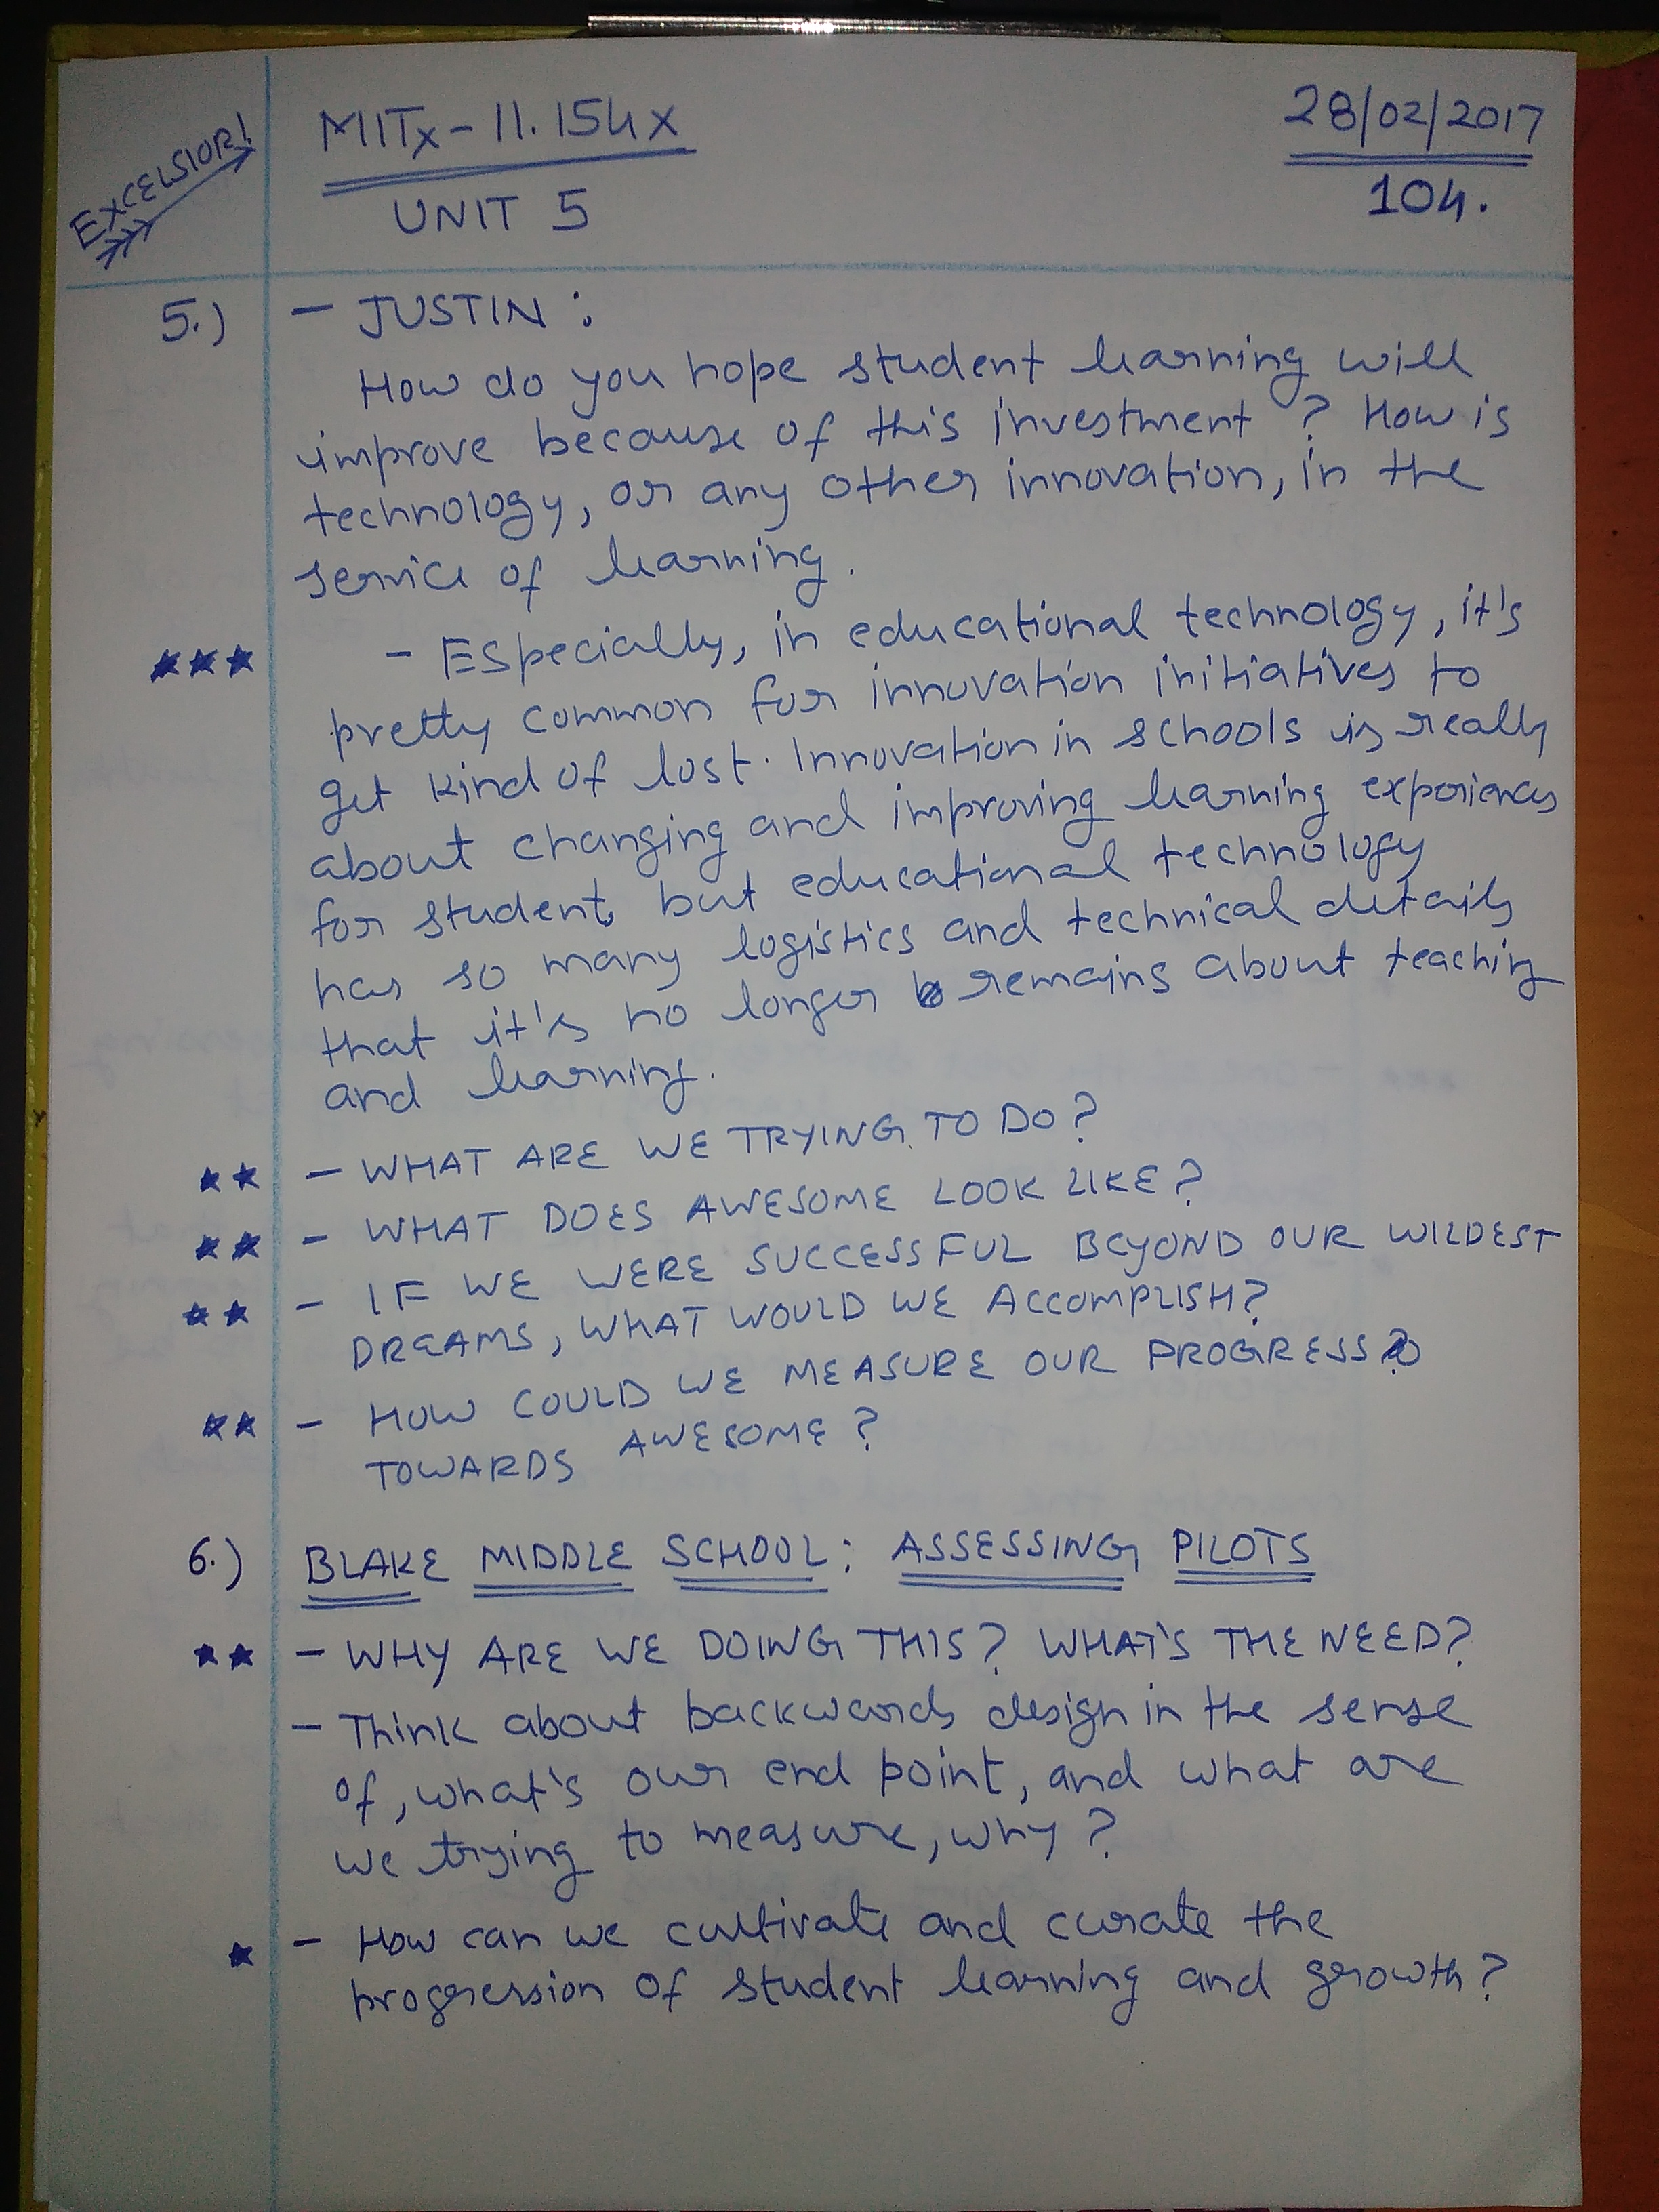 EXCELSIOR!
MITx - 11.154x
28/02/2017
UNIT 5
104.
5.) - JUSTIN :
How do you hope student learning will
improve because of this investment? How is
technology, or any other innovation, in the
service of learning.
*** - Especially, in educational technology, it's
pretty common for innovation initiatives to
get kind of lost. Innovation in schools is really
about changing and improving learning experiences
for student, but educational technology
has so many logistics and technical details
that it's no longer remains about teaching
and learning.
** - WHAT ARE WE TRYING TO DO?
** - WHAT DOES AWESOME LOOK LIKE?
** - IF WE WERE SUCCESSFUL BEYOND OUR WILDEST
DREAMS, WHAT WOULD WE ACCOMPLISH?
** - HOW COULD WE MEASURE OUR PROGRESS
TOWARDS AWESOME?
6.) BLAKE MIDDLE SCHOOL: ASSESSING PILOTS
** - WHY ARE WE DOING THIS? WHAT'S THE NEED?
- Think about backwards design in the sense
of, what's our end point, and what are
we trying to measure, why?
* - How can we cultivate and curate the
progression of student learning and growth?